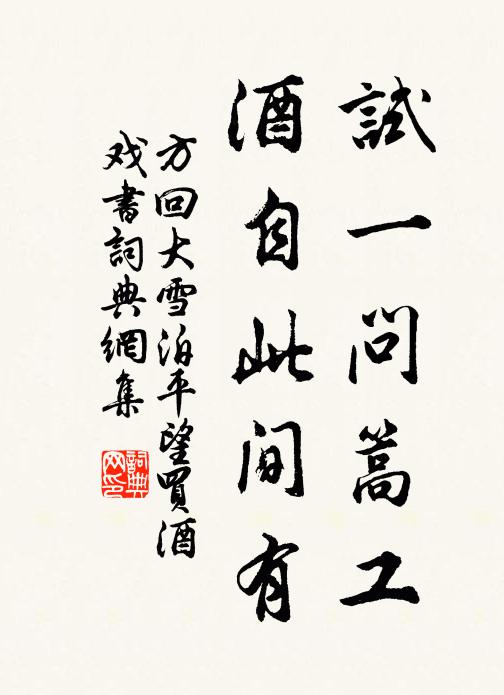 試一問篙工
酒自此間有
方回大雪泊平望買酒
戏書詞典網集
詞典网印